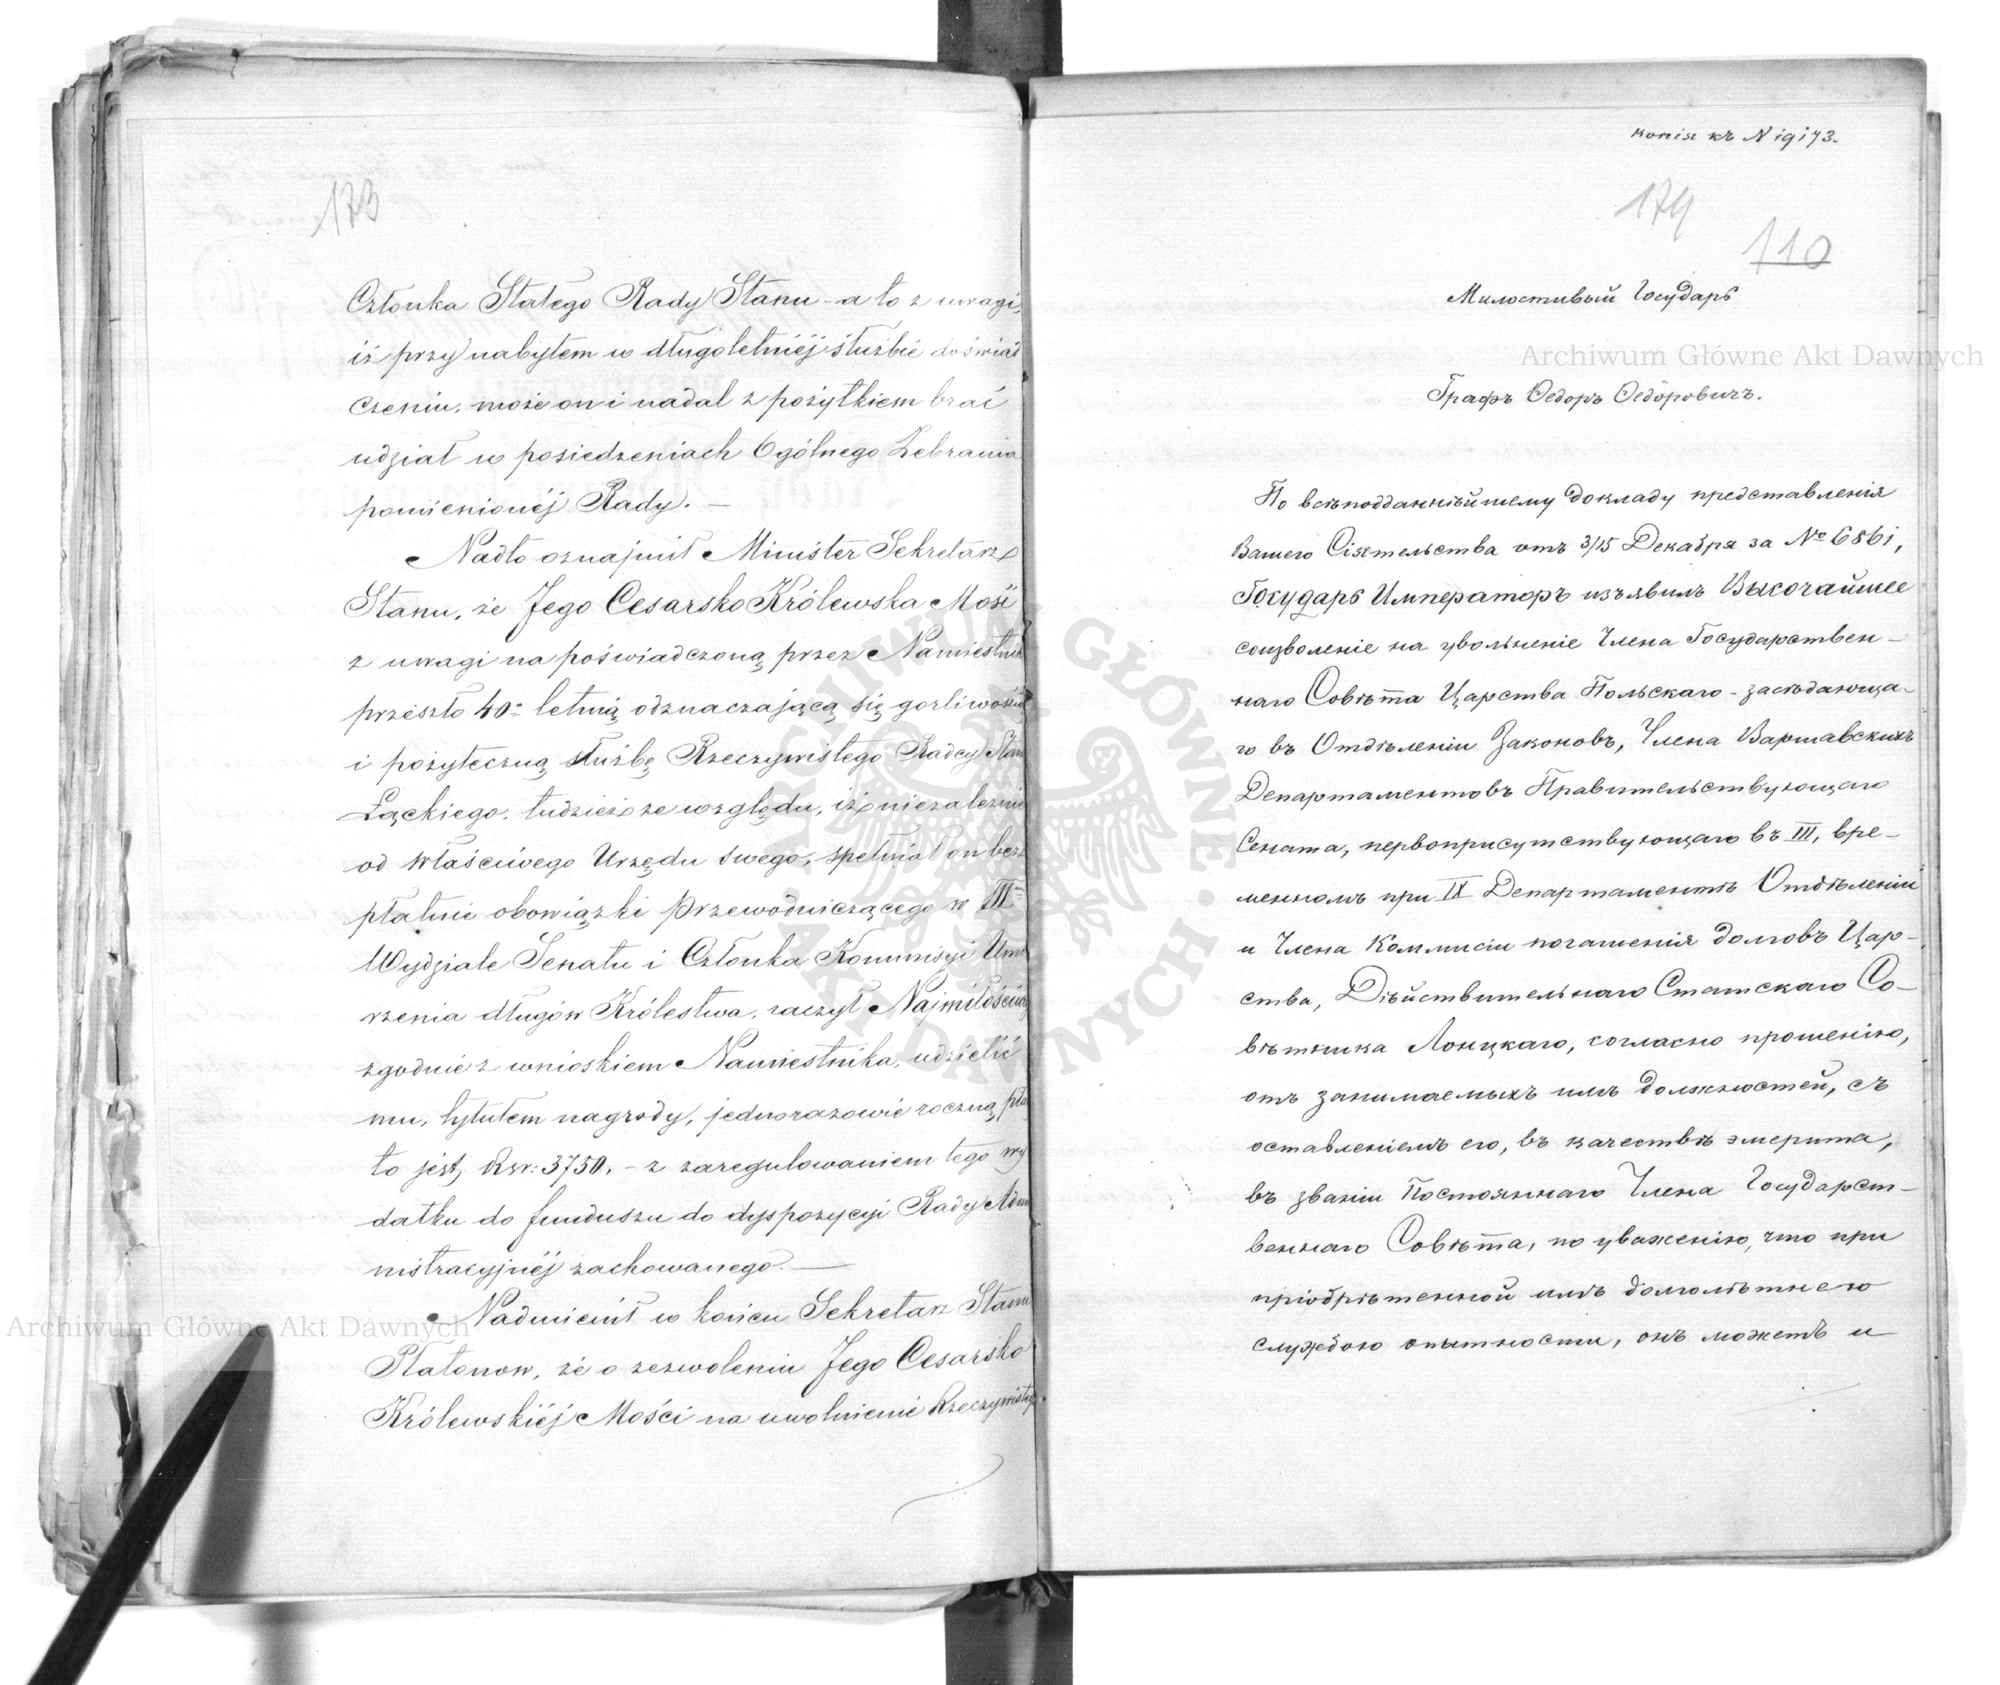 173
Członka Stałego Rady Stanu - a to z uwagi,
iż przy nabytem w długoletniéj służbie doświad
czeniu, może on i nadal z pożytkiem brać
udział w posiedzeniach Ogólnego Zebrania
pomienionéj Rady. —
Nadto oznajmił Minister Sekretarz
Stanu, że Jego Cesarsko Królewska Mość
z uwagi na poświadczoną przez Namiestnik
przeszło 40° letnią odznaczającą się gorliwością
i pożyteczną służbę Rzeczywistego Radcy Stan
Łąckiego, tudzież ze względu, iż niezależnie
od właściwego Urzędu swego, spełniał on bez
płatnie obowiązki Przewodniczącego w III
Wydziale Senatu i Członka Kommisyi Umo
rzenia długów Królestwa, raczył Najmiłościw
zgodnie z wnioskiem Namiestnika, udzielić
mu, tytułem nagrody, jednorazowie roczną pła
to jest, Rsr: 3750, - z zaregulowaniem tego wy
datku do funduszu do dyspozycyi Rady Admi
nistracyjnéj zachowanego. —
Nadmienił w końcu Sekretarz Stanu
Płatonow, że o zezwoleniu Jego Cesarsko
Królewskiéj Mości na uwolnienie Rzeczywisteg
копія къ N 19173.
174
110
Милостивый Государь
Графъ Ѳедоръ Ѳедоровичъ.
По всѣподданнѣйшему докладу представленія
Вашего Сіятельства отъ 3/15 Декабря за № 6861,
Государь Императоръ изъявилъ Высочайшее
соизволеніе на увольненіе Члена Государствен-
наго Совѣта Царства Польскаго - засѣдающа-
го въ Отдѣленіи Законовъ, Члена Варшавскихъ
Департаментовъ Правительствующаго
Сената, первоприсутствующаго въ III, вре-
менномъ при IX Департаментѣ Отдѣленіи
и Члена Коммисіи погашенія долговъ Цар-
ства, Дѣйствительнаго Статскаго Со-
вѣтника Лонцкаго, согласно прошенію,
отъ занимаемыхъ имъ должностей, съ
оставленіемъ его, въ качествѣ эмерита,
въ званіи Постояннаго Члена Государст-
веннаго Совѣта, по уваженію, что при
пріобрѣтенной имъ долголѣтнею
службою опытности, онъ можетъ и
Archiwum Główne Akt Dawnych
Archiwum Główne Akt Dawnych
ARCHIWUM GŁÓWNE · AKT DAWNYCH ·